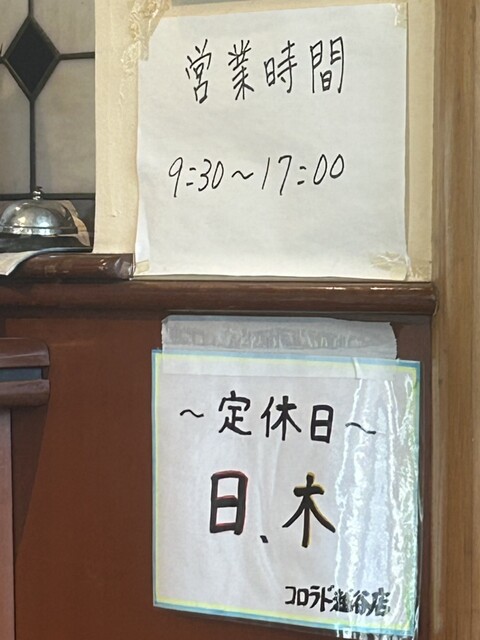 営業時間
9:30〜17:00
〜定休日〜
日、木
コロラド雑谷店